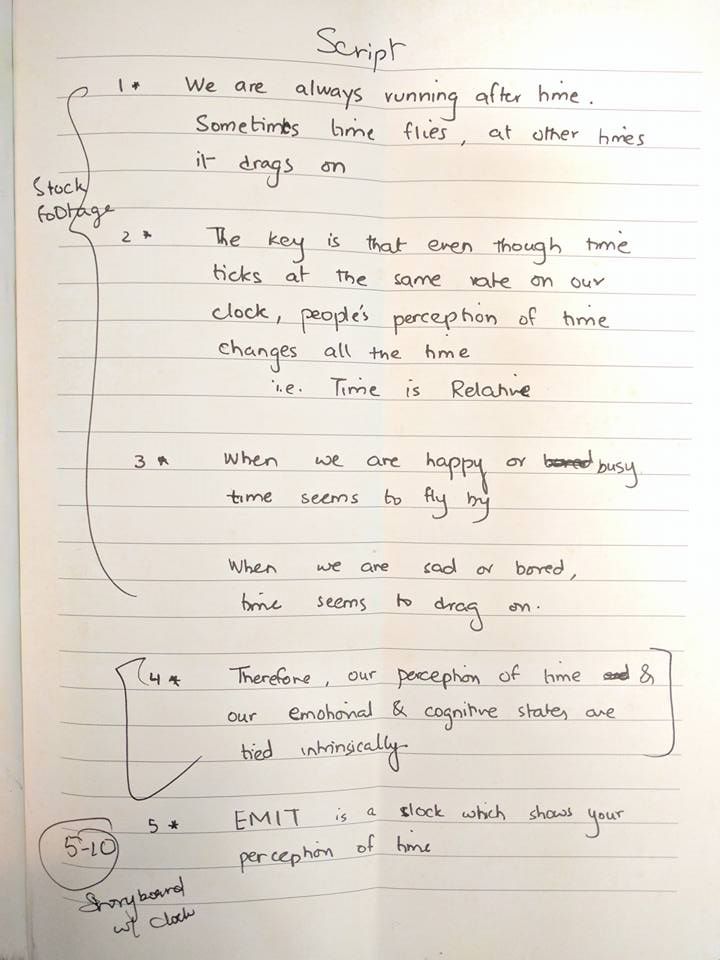 Script
1* We are always running after time.
Sometimes time flies, at other times
it drags on
Stock
footage
2* The key is that even though time
ticks at the same rate on our
clock, people's perception of time
changes all the time
i.e. Time is Relative
3* When we are happy or bored busy
time seems to fly by
When we are sad or bored,
time seems to drag on.
4* Therefore, our perception of time and &
our emotional & cognitive states are
tied intrinsically
5* EMIT is a clock which shows your
perception of time
5-10
Storyboard
w/ clock